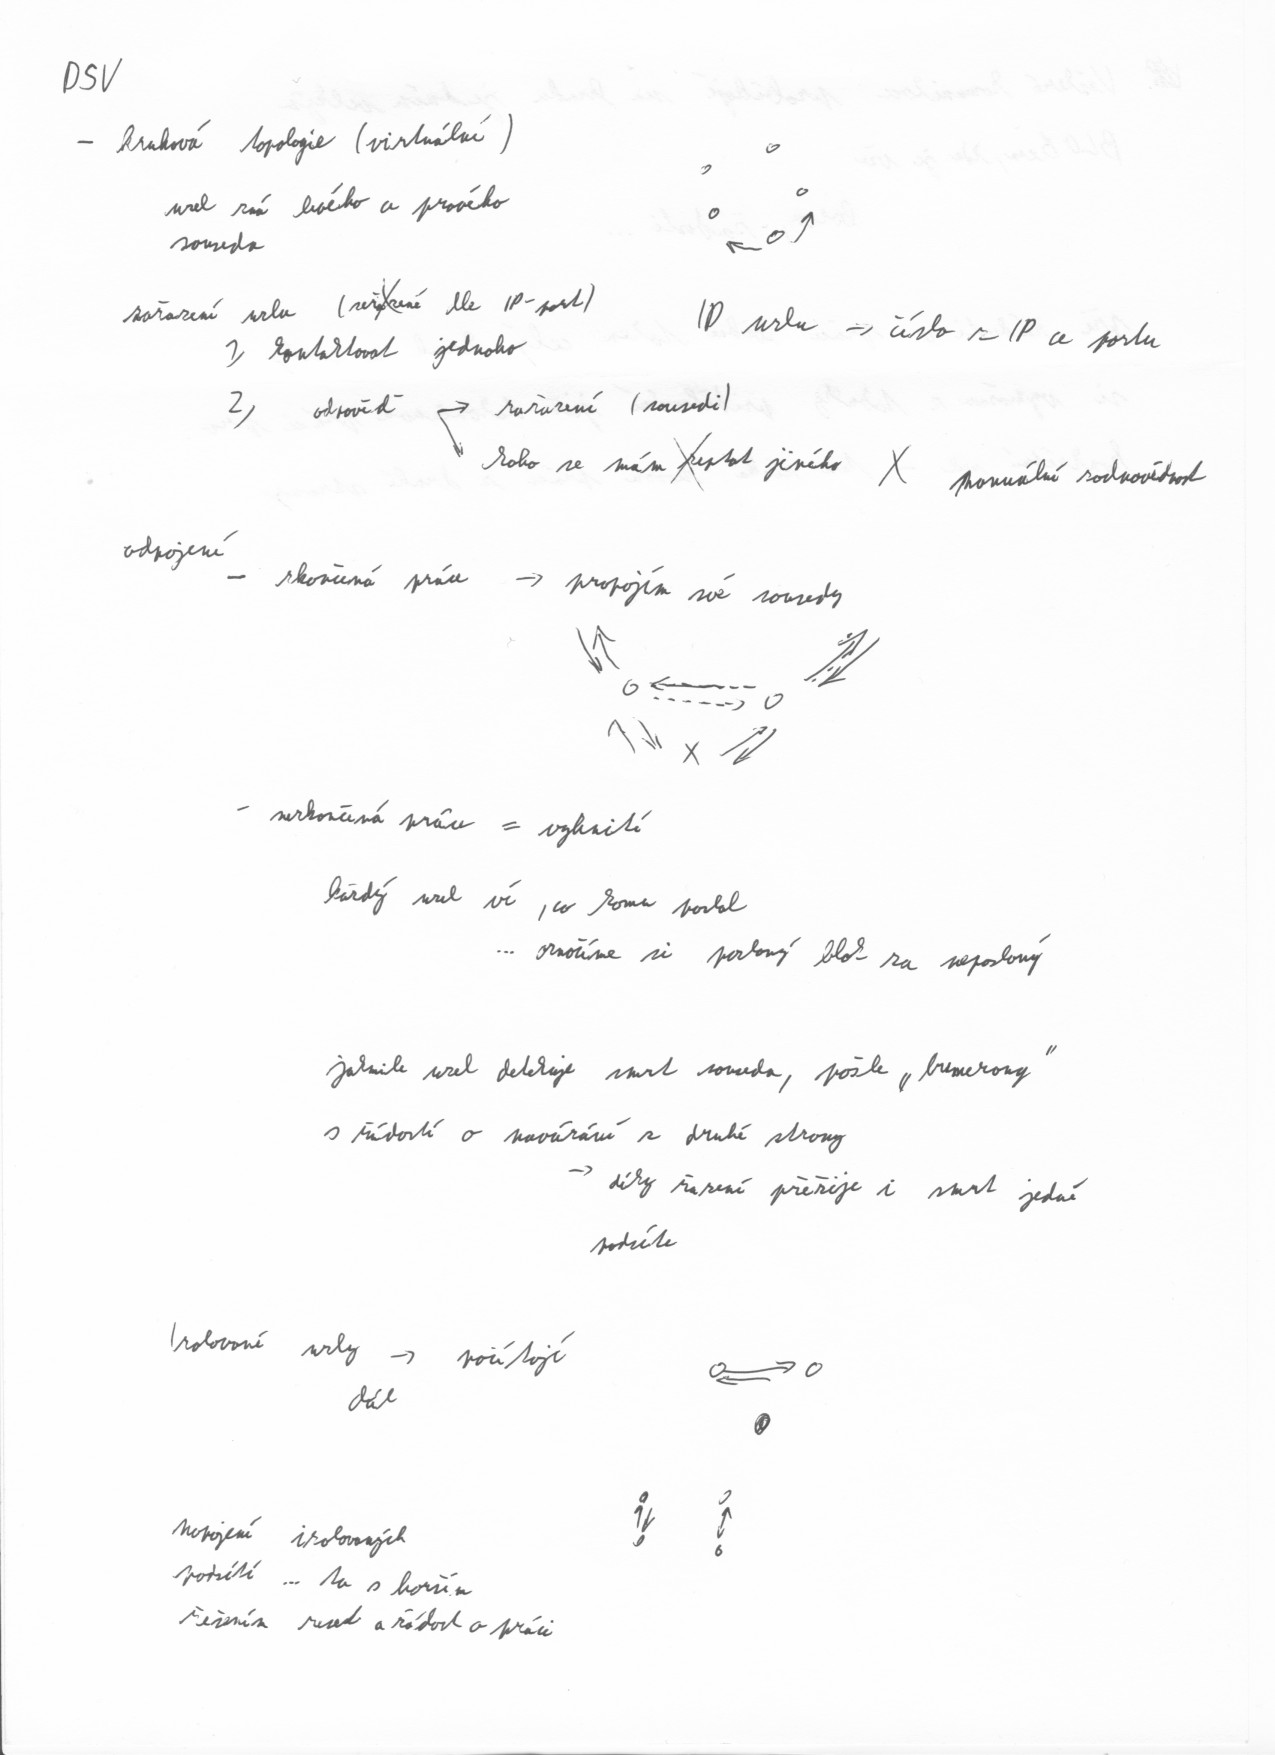 DSV
- kruhová topologie (virtuální)
uzel zná levého a pravého
souseda
zařazení uzlu (seřazené dle IP-port)
ID uzlu → číslo z IP a portu
1, kontaktovat jednoho
2, odpověď → zařazení (sousedi)
koho se mám zeptat jiného X manuální zodpovědnost
odpojení
- skončená práce → propojím své sousedy
X
- neskončená práce = vyhnití
každý uzel ví, co komu poslal
... označíme si poslaný blok za neposlaný
jakmile uzel detekuje smrt souseda, pošle „bumerang"
s žádostí o navázání z druhé strany
→ díky řazení přežije i smrt jedné
podsítě
Izolované uzly → počítají
dál
Napojení izolovaných
podsítí ... ta s horším
řešením reset a žádost o práci